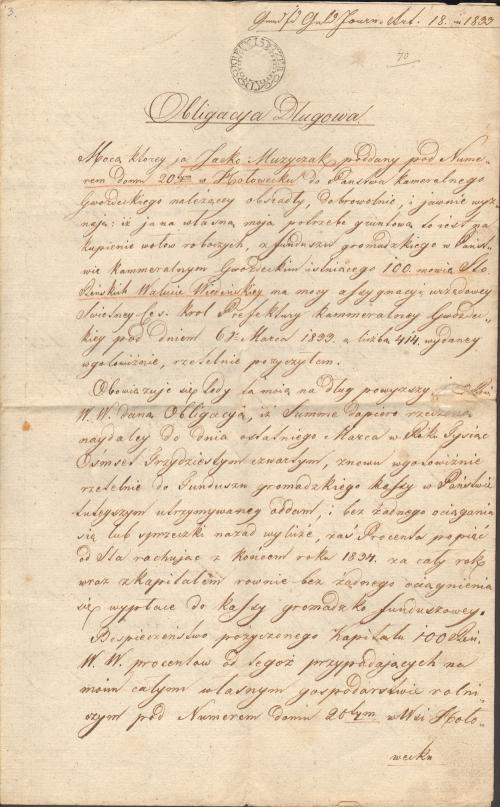 3.
18. in 1833
70
Obligacya Długowa.
Mocą ktorey ja Jacko Muzyczak, poddany pod Nume-
rem domu 20tym w Hołowecku do Państwa kameralnego
Gwoździeckiego należący obsiadły, dobrowolnie, i jawnie wyz-
naję: iż ja na własną moją potrzebę gruntową to iest na
kupienie wołow roboczych, z funduszu gromadzkiego w Pańs-
twie kammeralnym Gwoździeckim istniącego 100. mowię Sto
Reńskich Walucie Wiedeńskiey na mocy assygnacyi urzędowey
Swietney Ces. Krol. Prefektury kammeralney Gwoździec-
kiey pod dniem 6go Marca 1833. a liczbą 414. wydaney
wgotowiźnie, rzetelnie pożyczyłem.
Obowiązuję się tedy tą moią na dług powyższy
W. W. daną Obligacyą, iż Summę dopiero rzeczoną
naydaley do dnia ostatniego Marca w Roku Tysiąc
Ośmset Trzydziestym czwartym, znowu wgotowiźnie
rzetelnie do Funduszu gromadzkiego kassy w Państwie
tuteyszym utrzymywaney oddam, i bez żadnego ociągania
się lub sprzeczki nazad wyliżę, zaś Procenta po pięć
od Sta rachując z końcem roku 1834. za cały rok
wraz z kapitałem rownie bez żadnego ociągnienia
się wypłacę do kassy gromadzko funduszowey.
Bespieczeństwo pożyczonego Kapitału 100 Reń.
W. W. procentow od tegoż przypadających na
moim całym własnym gospodarstwie rolni-
czym pod Numerem domu 20tym w Wsi Hoło-
wecku